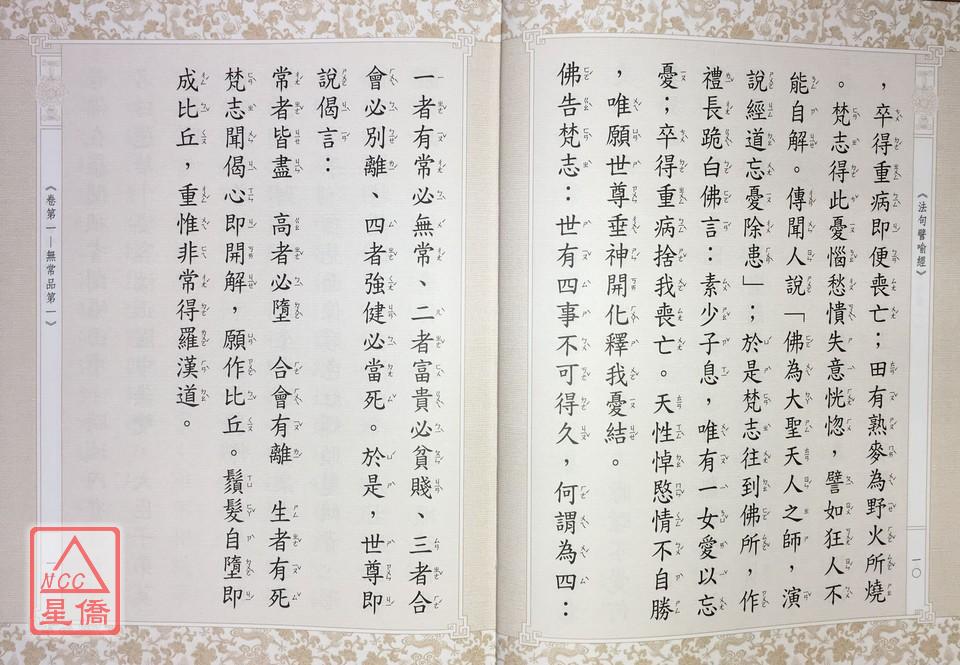 《法句譬喻經》
一〇
，卒得重病即便喪亡；田有熟麥為野火所燒
。梵志得此憂惱愁憒失意恍惚，譬如狂人不
能自解。傳聞人說「佛為大聖天人之師，演
說經道忘憂除患」；於是梵志往到佛所，作
禮長跪白佛言：素少子息，唯有一女愛以忘
憂；卒得重病捨我喪亡。天性悼愍情不自勝
，唯願世尊垂神開化釋我憂結。
佛告梵志：世有四事不可得久，何謂為四：
一者有常必無常、二者富貴必貧賤、三者合
會必別離、四者強健必當死。於是，世尊即
說偈言：
常者皆盡　高者必墮　合會有離　生者有死
梵志聞偈心即開解，願作比丘。鬚髮自墮即
成比丘，重惟非常得羅漢道。
《卷第一—無常品第一》
NCC
星僑